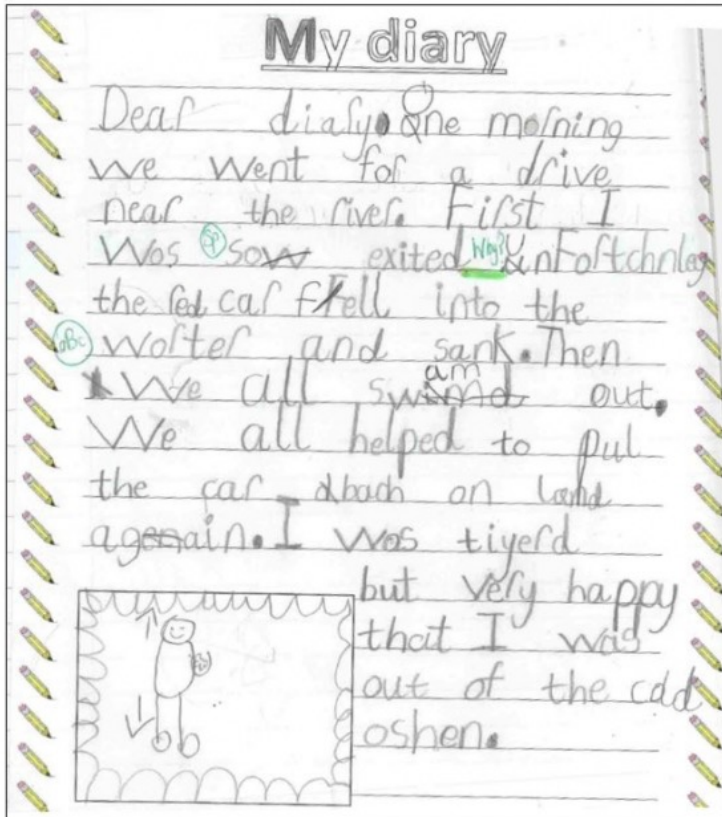 My diary
Dear diary. One morning
we went for a drive
near the river. First I
Wos sp sow exited Way? UnFortchnley
the red car Fell into the
aBc worter and sank. Then
We all swam out.
We all helped to pul
the car bach on land
again. I wos tiyerd
but very happy
that I was
out of the cold
oshen.